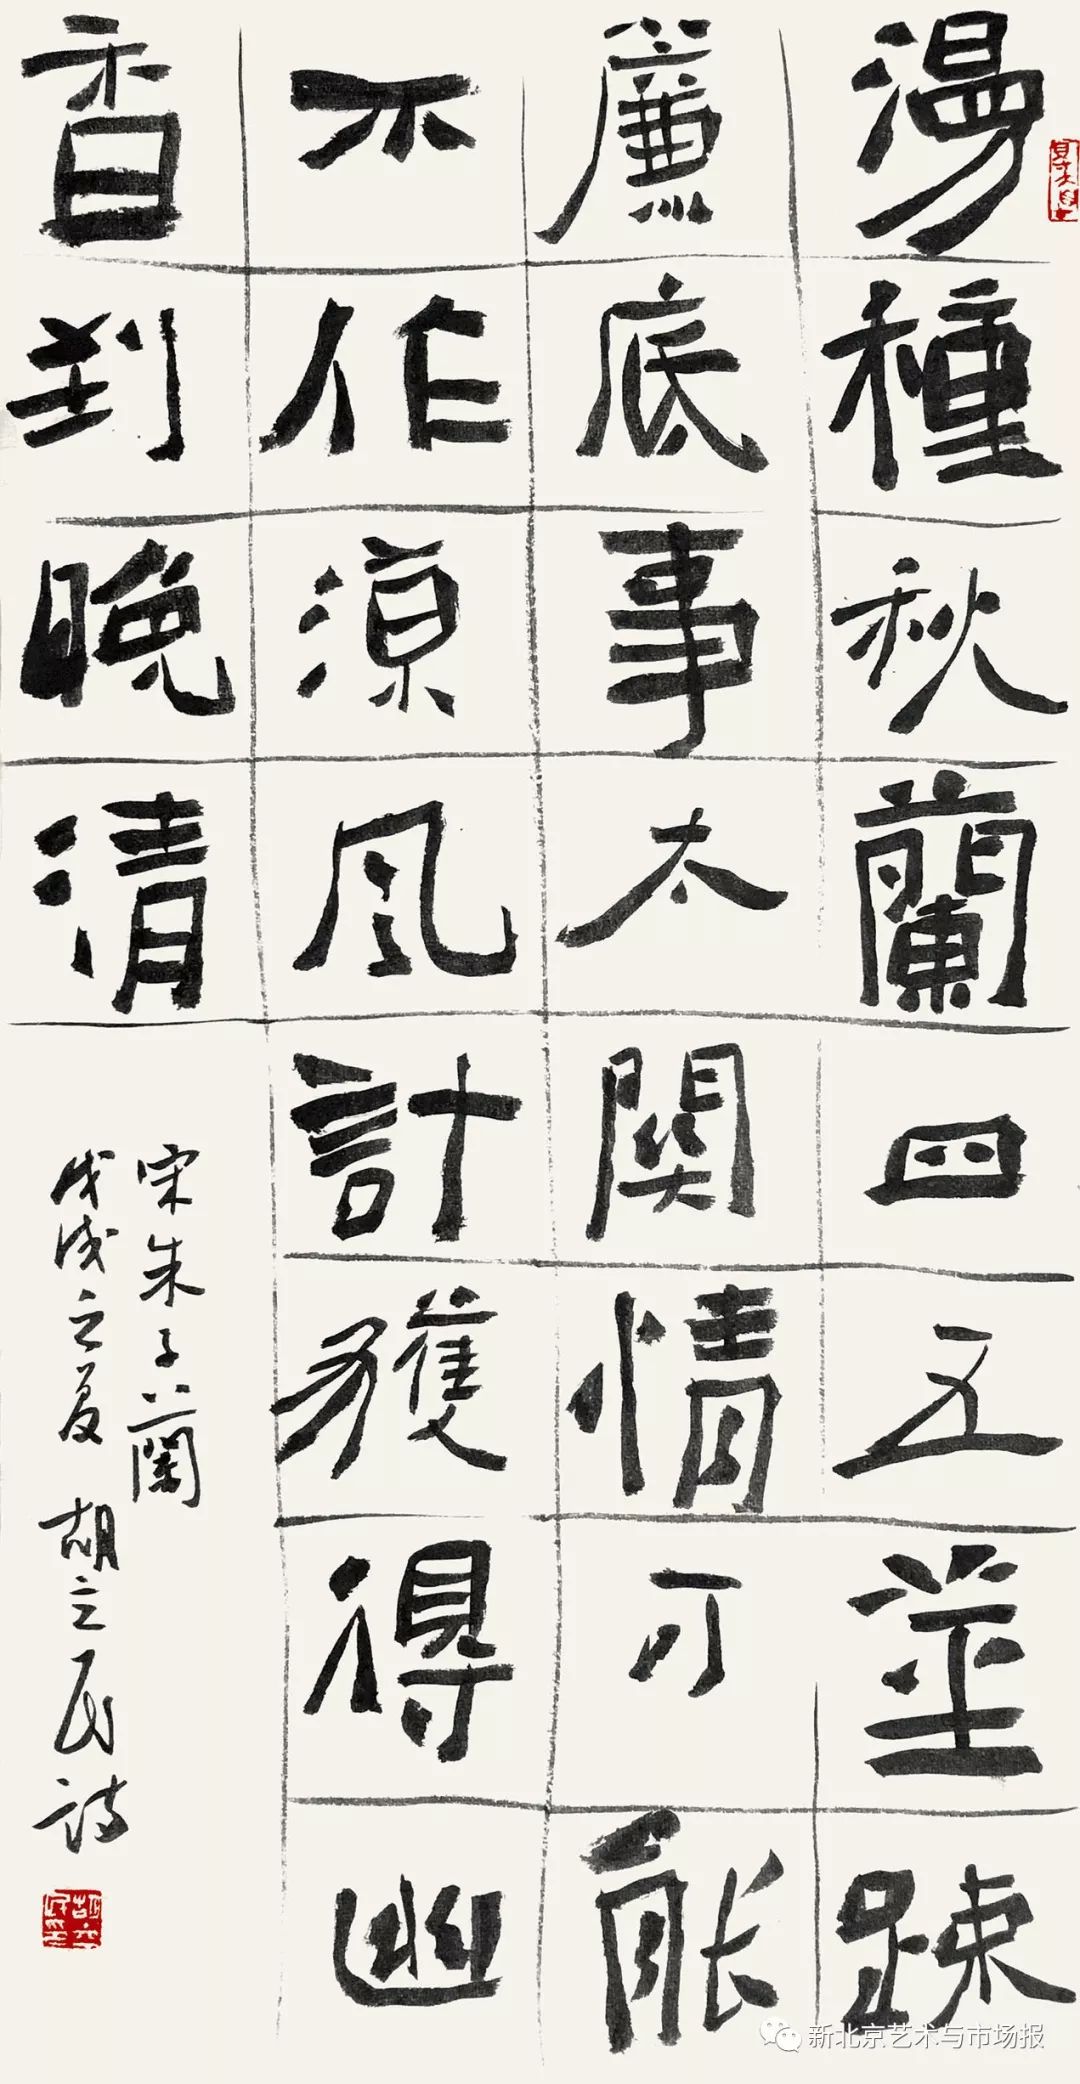 漫種秋蘭四五莖疎
簾底事太關情可能
不作涼風計獲得幽
香到晚清
宋朱子蘭
戊戌之夏 胡立民
胡立民印
新北京艺术与市场报